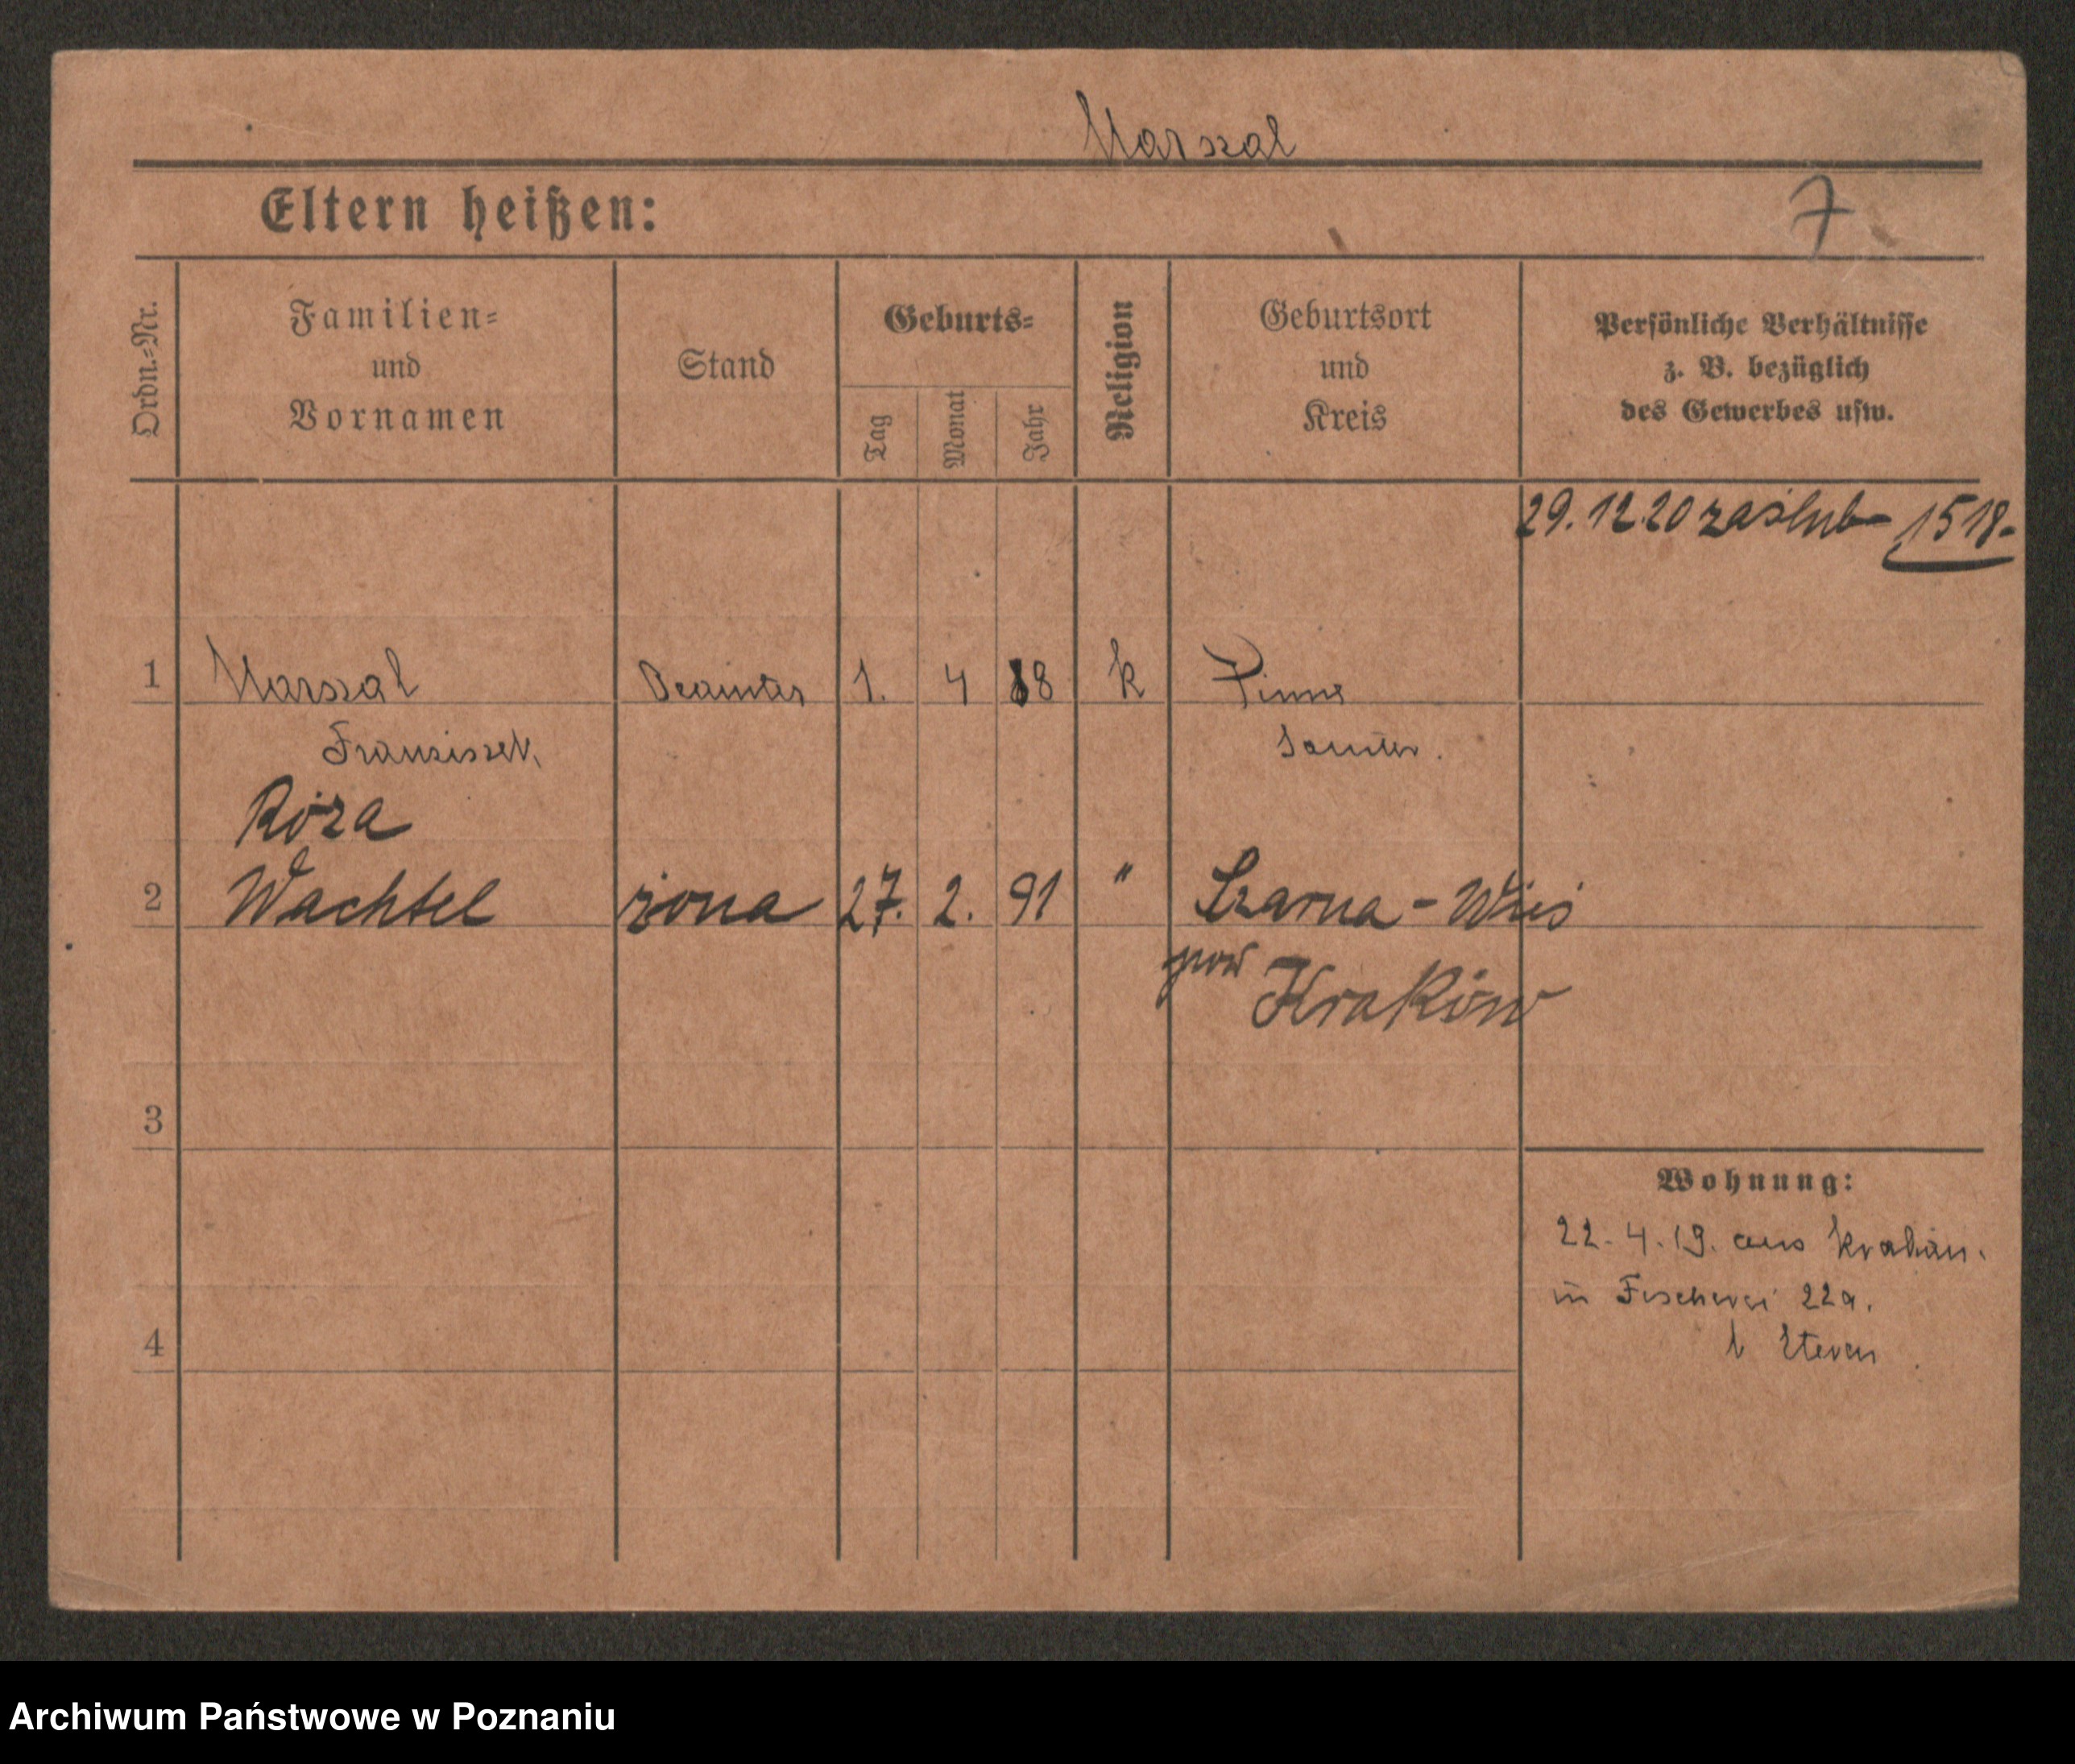 Marszal
Eltern heißen:
7
Ordn.-Nr.
Familien-
und
Vornamen
Stand
Geburts-
Tag
Monat
Jahr
Religion
Geburtsort
und
Kreis
Persönliche Verhältnisse
z. B. bezüglich
des Gewerbes usw.
29. 12. 20 zaślub 1518.
1 Marszal Beamter 1. 4 88 k Pinne
Franzissek Samter.
Róza
2 Wachtel żona 27. 2. 91 " Czarna-Wieś
pow Kraków
3
Wohnung:
22. 4. 19. aus Krakau.
in Fischerei 22a.
4
b
Archiwum Państwowe w Poznaniu